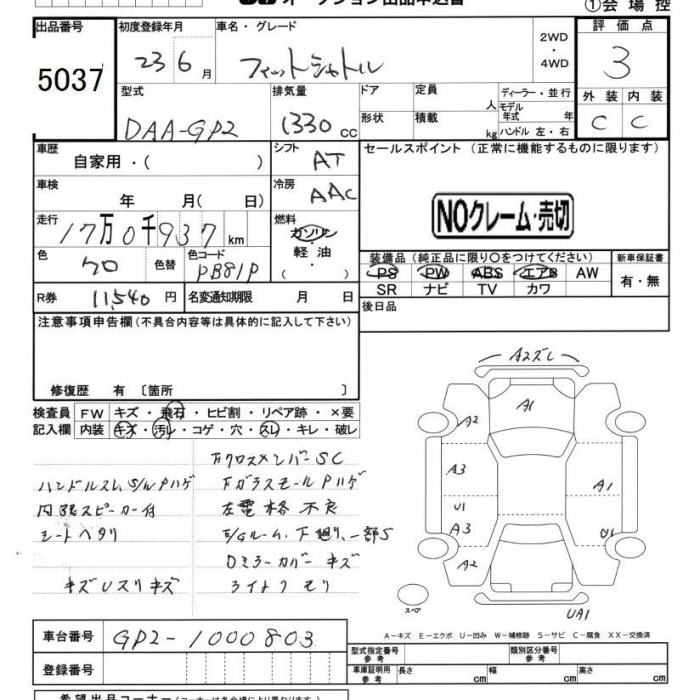 オークション出品申込書
①会場控
出品番号 初度登録年月 車名・グレード 2WD・4WD 評価点
5037 23 6月 フィットシャトル 3
型式 排気量 ドア 定員 人 ディーラー・並行 外装 内装
DAA-GP2 1330cc 形状 積載 kg モデル年式 年 ハンドル 左・右 C C
車歴 自家用・( ) シフト AT セールスポイント (正常に機能するものに限ります)
車検 年 月(日) 冷房 AAC
NOクレーム・売切
走行 17万0千937km 燃料 ガソリン・軽油・( )
装備品 (純正品に限り○をつけてください) 新車保証書
色 クロ 色替 色コード PB81P
PS PW ABS エアB AW 有・無
SR ナビ TV カワ
R券 11,540円 名変通知期限 月 日 後日品
注意事項申告欄(不具合内容等は具体的に記入して下さい)
修復歴 有〔箇所 〕
検査員記入欄 FW キズ・飛石・ヒビ割・リペア跡・×要
内装 キズ・汚レ・コゲ・穴・スレ・キレ・破レ
下クロスメンバーSC
ハンドルスレ S/N Pハゲ
Fガラスモール Pハゲ
内張スピーカー付
左電格不良
シートヘタリ
E/Gルーム、下廻り、一部S
Dミラーカバーキズ
キズUスリキズ
ライトクモリ
A2ズレ
A1
A2
A3
A1
U1
A3
U1
A2
スペア
UA1
A-キズ E-エクボ U-凹み W-補修跡 S-サビ C-腐食 XX-交換済
車台番号 GP2-1000803
型式指定番号 参考 類別区分番号 参考
登録番号
車庫証明用 参考 長さ cm 幅 cm 高さ cm
希望出品コーナー(コーナーは各会場により異なります)